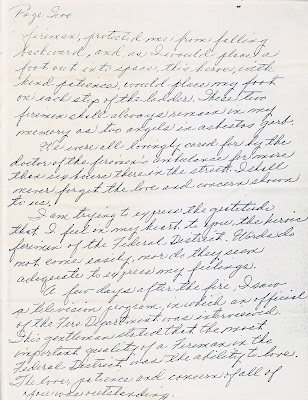 Page Two
fireman, protected me from falling
backward, and as I would place a
foot out into space, this hero, with
kind patience, would place my foot
on each step of the ladder. These two
firemen shall always remain in my
memory as two angels in asbestos garb.
We were all lovingly cared for by the
doctor of the firemen's ambulance for more
than six hours there in the street. I shall
never forget the love and concern shown
to us.
I am trying to express the gratitude
that I feel in my heart to you, the heroic
firemen of the Federal District. Words do
not come easily, nor do they seem
adequate to express my feelings.
A few days after the fire, I saw
a television program, in which an official
of the Fire Department was interviewed.
This gentleman stated that the most
important quality of a Fireman in the
Federal District, was the ability to love.
The love, patience and concern of all of
you was outstanding.